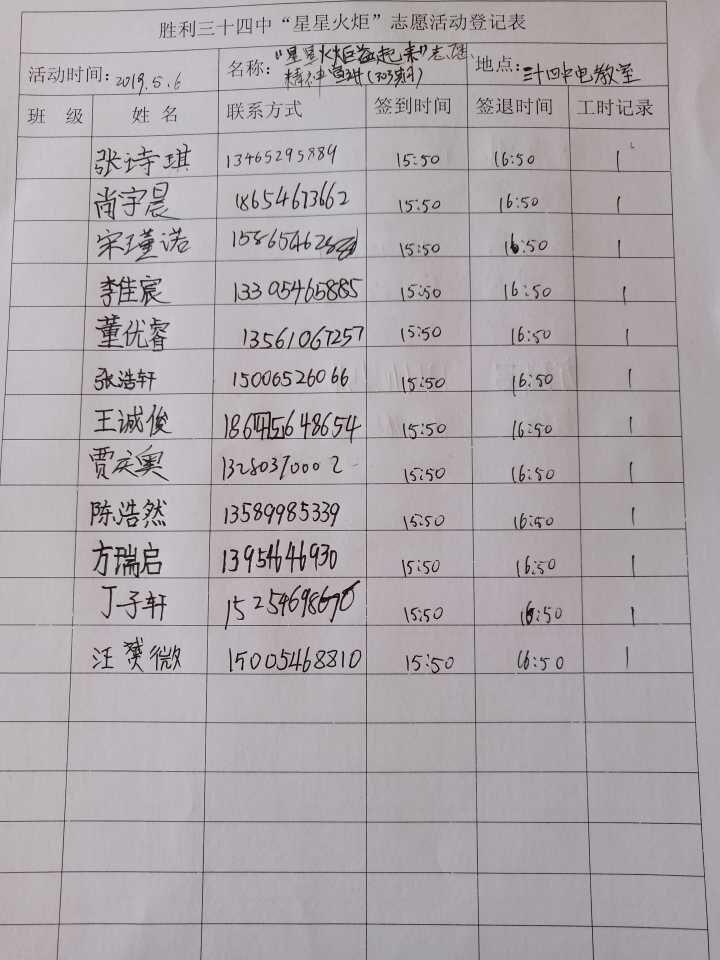 胜利三十四中“星星火炬”志愿活动登记表
活动时间: 2019.5.6 名称: “星星火炬益起来”志愿 地点: 三十四中电教室
精神宣讲
班 级 姓 名 联系方式 签到时间 签退时间 工时记录
张诗琪 13465295889 15:50 16:50 1
尚宇晨 18654673662 15:50 16:50 1
宋瑾诺 15:50 16:50 1
李佳宸 13305465885 15:50 16:50 1
董优睿 13561067257 15:50 16:50 1
张浩轩 15006526066 15:50 16:50 1
王诚俊 15:50 16:50 1
贾奥 13280370002 15:50 16:50 1
陈浩然 13589985339 15:50 16:50 1
方瑞启 13954646930 15:50 16:50 1
丁子轩 15254698670 15:50 16:50 1
汪微 15005468810 15:50 16:50 1